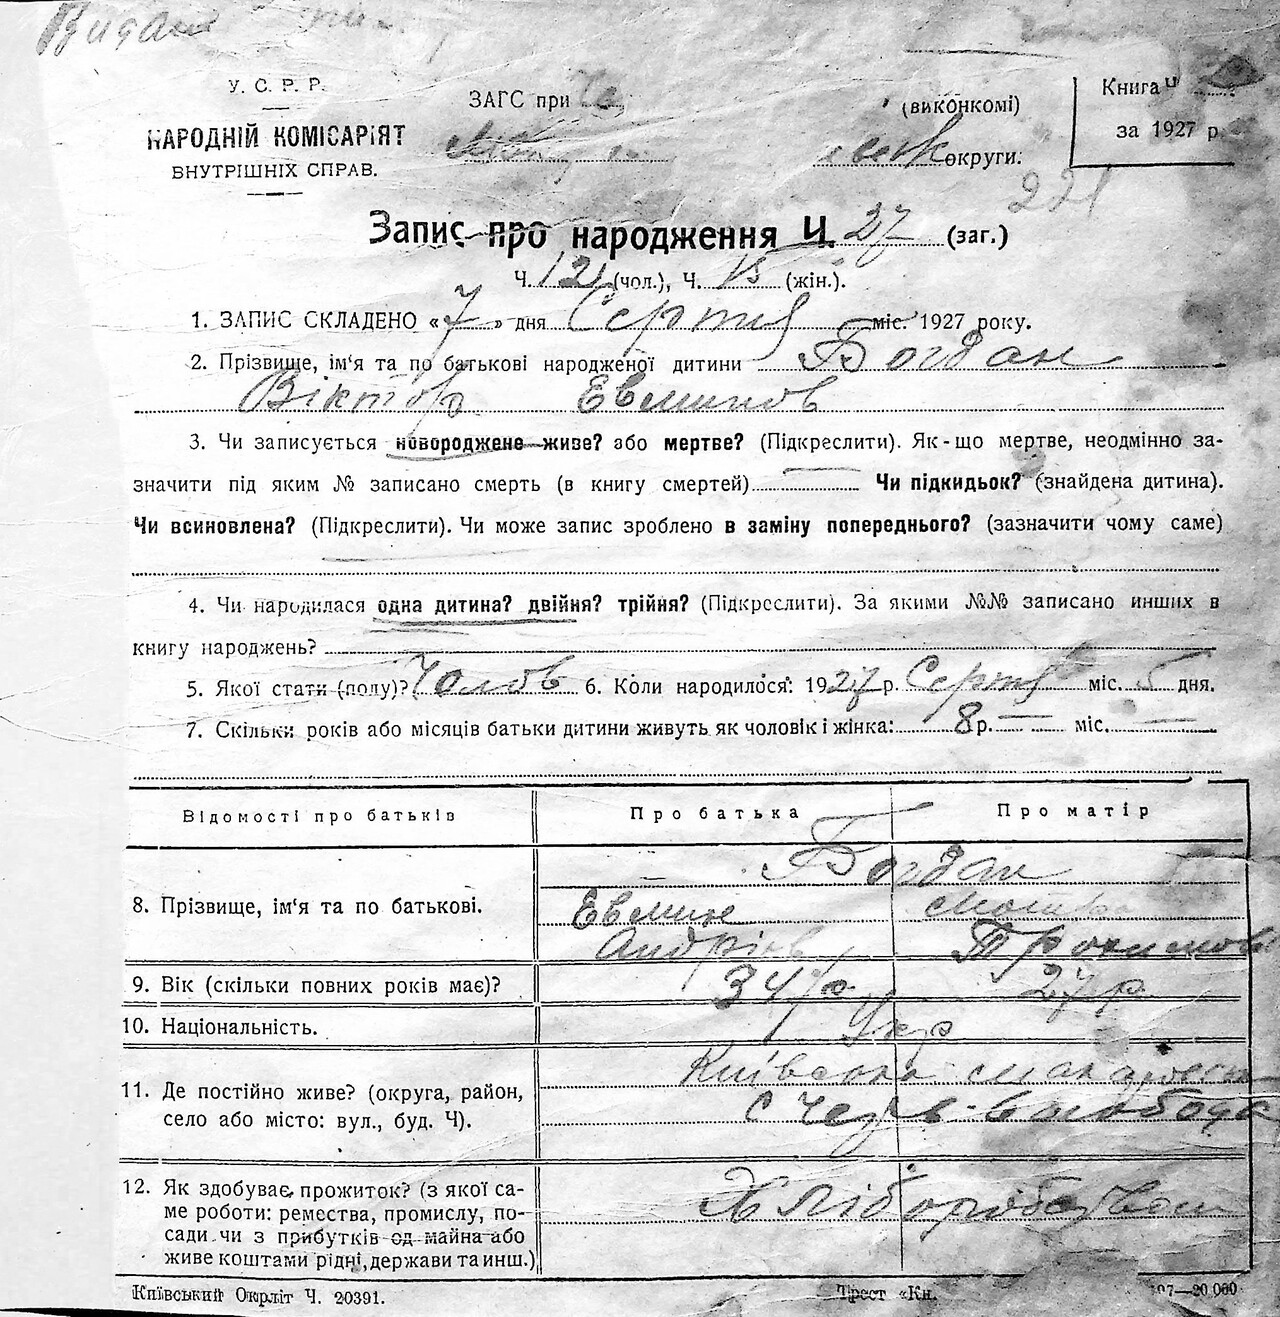 Видано
У. С. Р. Р.
НАРОДНІЙ КОМІСАРІЯТ
ВНУТРІШНІХ СПРАВ.
ЗАГС при
(виконкомі)
округи.
Книга Ч
за 1927 р
221
Запис про народження Ч. 27 (заг.)
Ч. 12 (чол.), Ч. 15 (жін.).
1. ЗАПИС СКЛАДЕНО «7» дня Серпня міс. 1927 року.
2. Прізвище, ім'я та по батькові народженої дитини Богдан
Віктор Евминов
3. Чи записується новороджене живе? або мертве? (Підкреслити). Як-що мертве, неодмінно за-
значити під яким № записано смерть (в книгу смертей) Чи підкидьок? (знайдена дитина).
Чи всиновлена? (Підкреслити). Чи може запис зроблено в заміну попереднього? (зазначити чому саме)
4. Чи народилася одна дитина? двійня? трійня? (Підкреслити). За якими №№ записано инших в
книгу народжень?
5. Якої стати (полу)? Чолов 6. Коли народилося: 1927 р. Серпня міс. 5 дня.
7. Скільки років або місяців батьки дитини живуть як чоловік і жінка: 8 р. — міс. —
Відомості про батьків Про батька Про матір
Богдан
8. Прізвище, ім'я та по батькові. Евмин
Андріїв Трохимов
9. Вік (скільки повних років має)? 34 р 27 р
10. Національність. Укр
Київська Макарівськ
11. Де постійно живе? (округа, район,
село або місто: вул., буд. Ч). с Черв. Слобода
12. Як здобуває прожиток? (з якої са-
ме роботи: ремества, промислу, по- Хліборобством
сади чи з прибутків од майна або
живе коштами рідні, держави та инш.)
Київський Окрліт Ч. 20391. Трест «Кн. 20.000